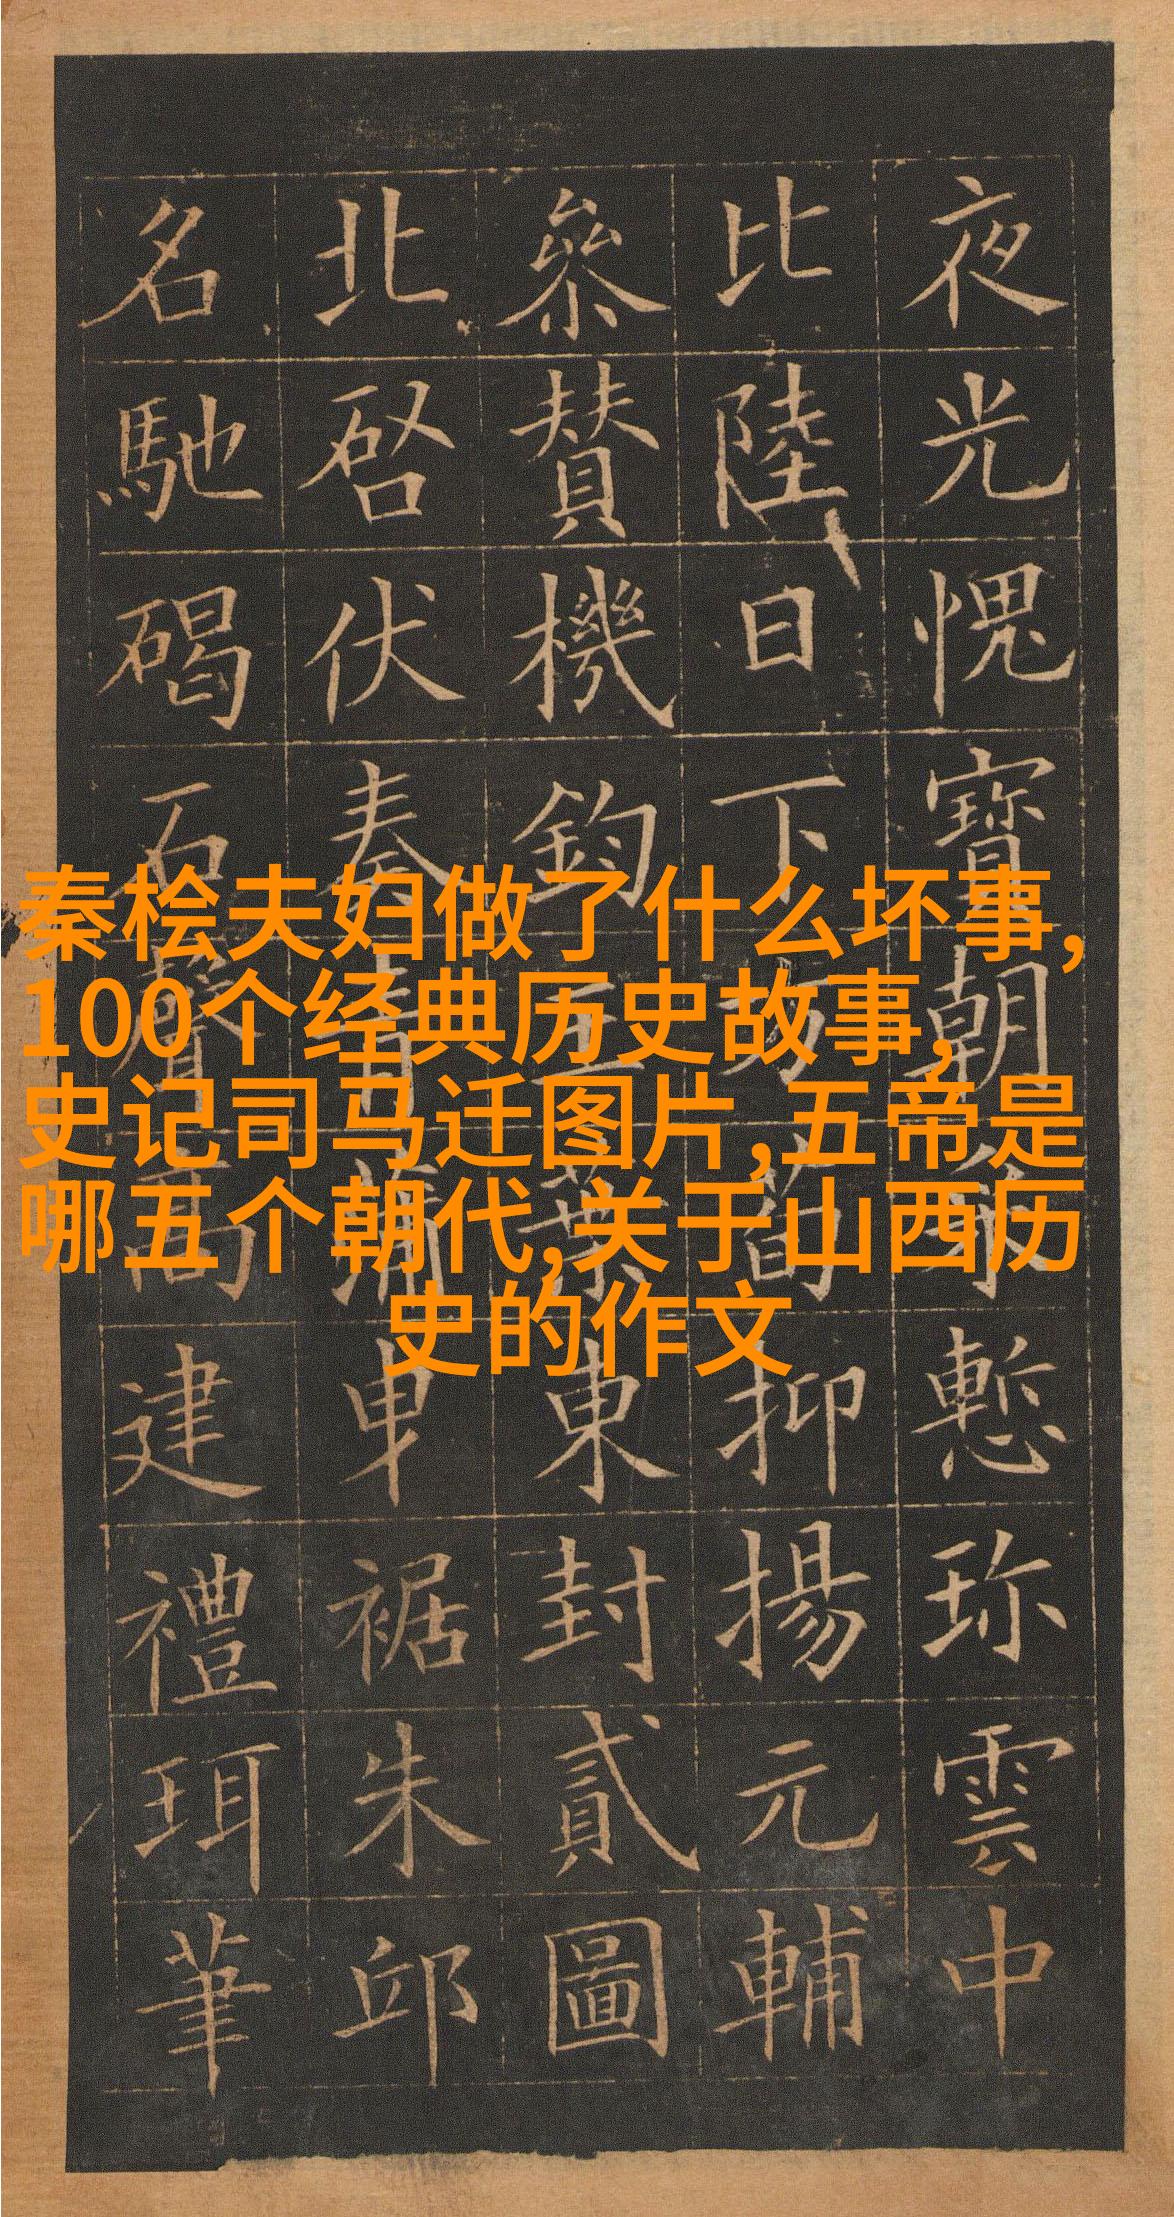 秦桧夫妇做了什么坏事,
100个经典历史故事,
史记司马迁图片,五帝是
哪五个朝代,关于山西历
史的作文
夜光愧寶朝慙珎雲中
比陸日下方荀抑揚元輔
叅賛機鈞五東封貳圖
北啓伏奏青蒲裾朱邱
名馳碣石聲高建禮珥筆